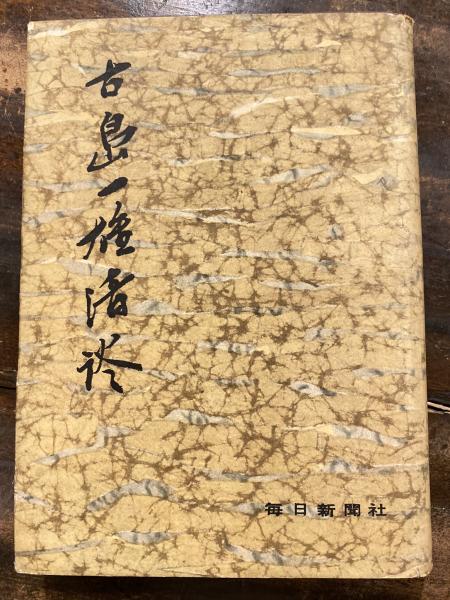 古島一雄清談
毎日新聞社